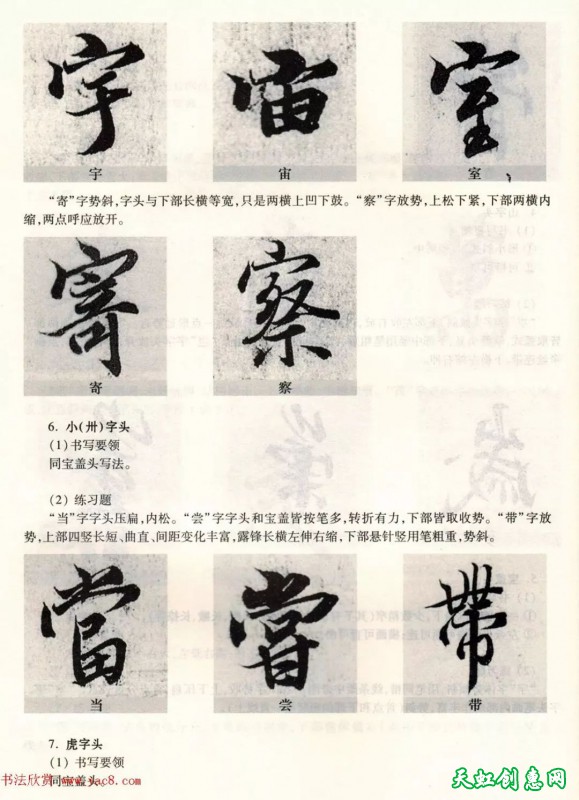 宇 宙 室
宇 宙 室
“寄”字势斜，字头与下部长横等宽，只是两横上凹下鼓。“察”字放势，上松下紧，下部两横内
缩，两点呼应放开。
寄 察
寄 察
6. 小(卅)字头
(1)书写要领
同宝盖头写法。
(2) 练习题
“当”字字头压扁，内松。“尝”字字头和宝盖皆按笔多，转折有力，下部皆取收势。“带”字放
势，上部四竖长短、曲直、间距变化丰富，露锋长横左伸右缩，下部悬针竖用笔粗重，势斜。
當 嘗 帶
当 尝 带
7. 虎字头
(1) 书写要领
同宝盖头。
书法欣赏 www.yac8.com
天虹创意网